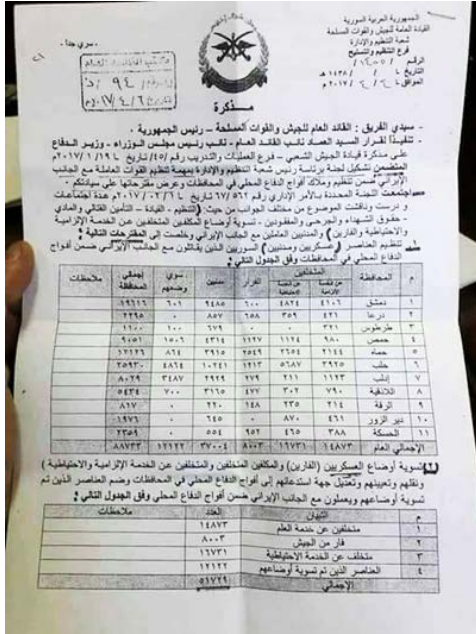 الجمهورية العربية السورية
القيادة العامة للجيش والقوات المسلحة
شعبة التنظيم والإدارة
فرع التنظيم والتسليح
الرقم / ١٤٥٥ /
التاريخ / / ١٤٣٨ هـ
الموافق ٤ / ٤ / ٢٠١٧ م
- سري جداً -
مذكرة
- سيدي الفريق : القائد العام للجيش والقوات المسلحة - رئيس الجمهورية .
- تنفيذاً لقرار السيد العماد نائب القائد العام - نائب رئيس مجلس الوزراء - وزير الدفاع
على مذكرة قيادة الجيش الشعبي - فرع العمليات والتدريب رقم /٤٥/ تاريخ ١٩ / ١ / ٢٠١٧م
المتضمن تشكيل لجنة برئاسة رئيس شعبة التنظيم والإدارة بمهمة تنظيم القوات العاملة مع الجانب
الإيراني ضمن تنظيم وملاك أفواج الدفاع المحلي في المحافظات وعرض مقترحاتها على سيادتكم .
- اجتمعت اللجنة المحددة بالأمر الإداري رقم ٦٧/٥٦٢ تاريخ ٦ / ٢ / ٢٠١٧م عدة اجتماعات
و درست وناقشت الموضوع من مختلف الجوانب من حيث (التنظيم - القيادة - التأمين القتالي والمادي
- حقوق الشهداء والجرحى والمفقودين - تسوية أوضاع المكلفين المتخلفين عن الخدمة الإلزامية
والاحتياطية والفارين) والمدنيين العاملين مع الجانب الإيراني وخلصت إلى المقترحات التالية :
تنظيم العناصر (عسكريين ومدنيين) السوريين الذين يقاتلون مع الجانب الإيراني ضمن أفواج
الدفاع المحلي في المحافظات وفق الجدول التالي :
م المحافظة المتخلفين الفرار مدنيين سوي وضعهم إجمالي المحافظة ملاحظات
عن خدمة الإلزامية عن خدمة الاحتياطية
١ دمشق ٤١٠٦ ٤٨٢٤ ٦٠٠ ٩٤٨٥ ٦٠١ ١٩٦١٦
٢ درعا ٤٢١ ٣٥٩ ٦٥٨ ٨٥٧ ٠ ٢٢٩٥
٣ طرطوس ٣٢١ ٠ ٠ ٦٧٩ ١٠٠ ١١٠٠
٤ حمص ٩٨٠ ١١٢٤ ١١٢٧ ٤٣١٤ ١٥٠٦ ٩٠٥١
٥ حماه ٢١٤٤ ٢٦٥٤ ٢٥٤٩ ٣٩١٥ ٨٦٤ ١٢١٢٦
٦ حلب ٣٩٢٥ ٥٦٨٧ ١٢١٣ ١٠٢٤١ ٤٨٦٤ ٢٥٩٣٠
٧ إدلب ١١٢٣ ٢١١ ٢٧٩ ٢٩٢٩ ٣٤٨٧ ٨٠٢٩
٨ اللاذقية ٧٩٠ ٣٠٢ ٤٧٧ ٣١٦٥ ٧٠٠ ٥٤٣٤
٩ الرقة ٢١٤ ٢٣٥ ١٤٨ ٢٢٠ ٠ ٨١٧
١٠ دير الزور ٤٦١ ٨٧٠ ٠ ٦٤٥ ٠ ١٩٧٦
١١ الحسكة ٣٨٨ ٤٦٥ ٩٥٢ ٥٥٤ ٠ ٢٣٥٩
الإجمالي العام ١٤٨٧٣ ١٦٧٣١ ٨٠٠٣ ٣٧٠٠٤ ١٢١٢٢ ٨٨٧٣٣
تسوية أوضاع العسكريين (الفارين) والمكلفين المتخلفين والمتخلفين عن الخدمة الإلزامية والاحتياطية )
ونقلهم وتعيينهم وتعديل جهة استدعائهم إلى أفواج الدفاع المحلي في المحافظات وضم العناصر الذين تم
تسوية أوضاعهم ويعملون مع الجانب الإيراني ضمن أفواج الدفاع المحلي وفق الجدول التالي :
م البيان العدد ملاحظات
١ متخلفين عن خدمة العلم ١٤٨٧٣
٢ فار من الجيش ٨٠٠٣
٣ متخلف عن الخدمة الاحتياطية ١٦٧٣١
٤ العناصر الذين تم تسوية أوضاعهم ١٢١٢٢
الإجمالي ٥١٧٢٩